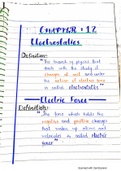 CHAPTER # 12
Electrostatics
Definition:
"The branch of physics that
deals with the study of
charges at rest and under
the action of electric force
is called electrostatics."
Electric Force
Definition:
"The force which holds the
negative and positive charges
that makes up atoms and
molecules is called electric
force."
Scanned with CamScanner